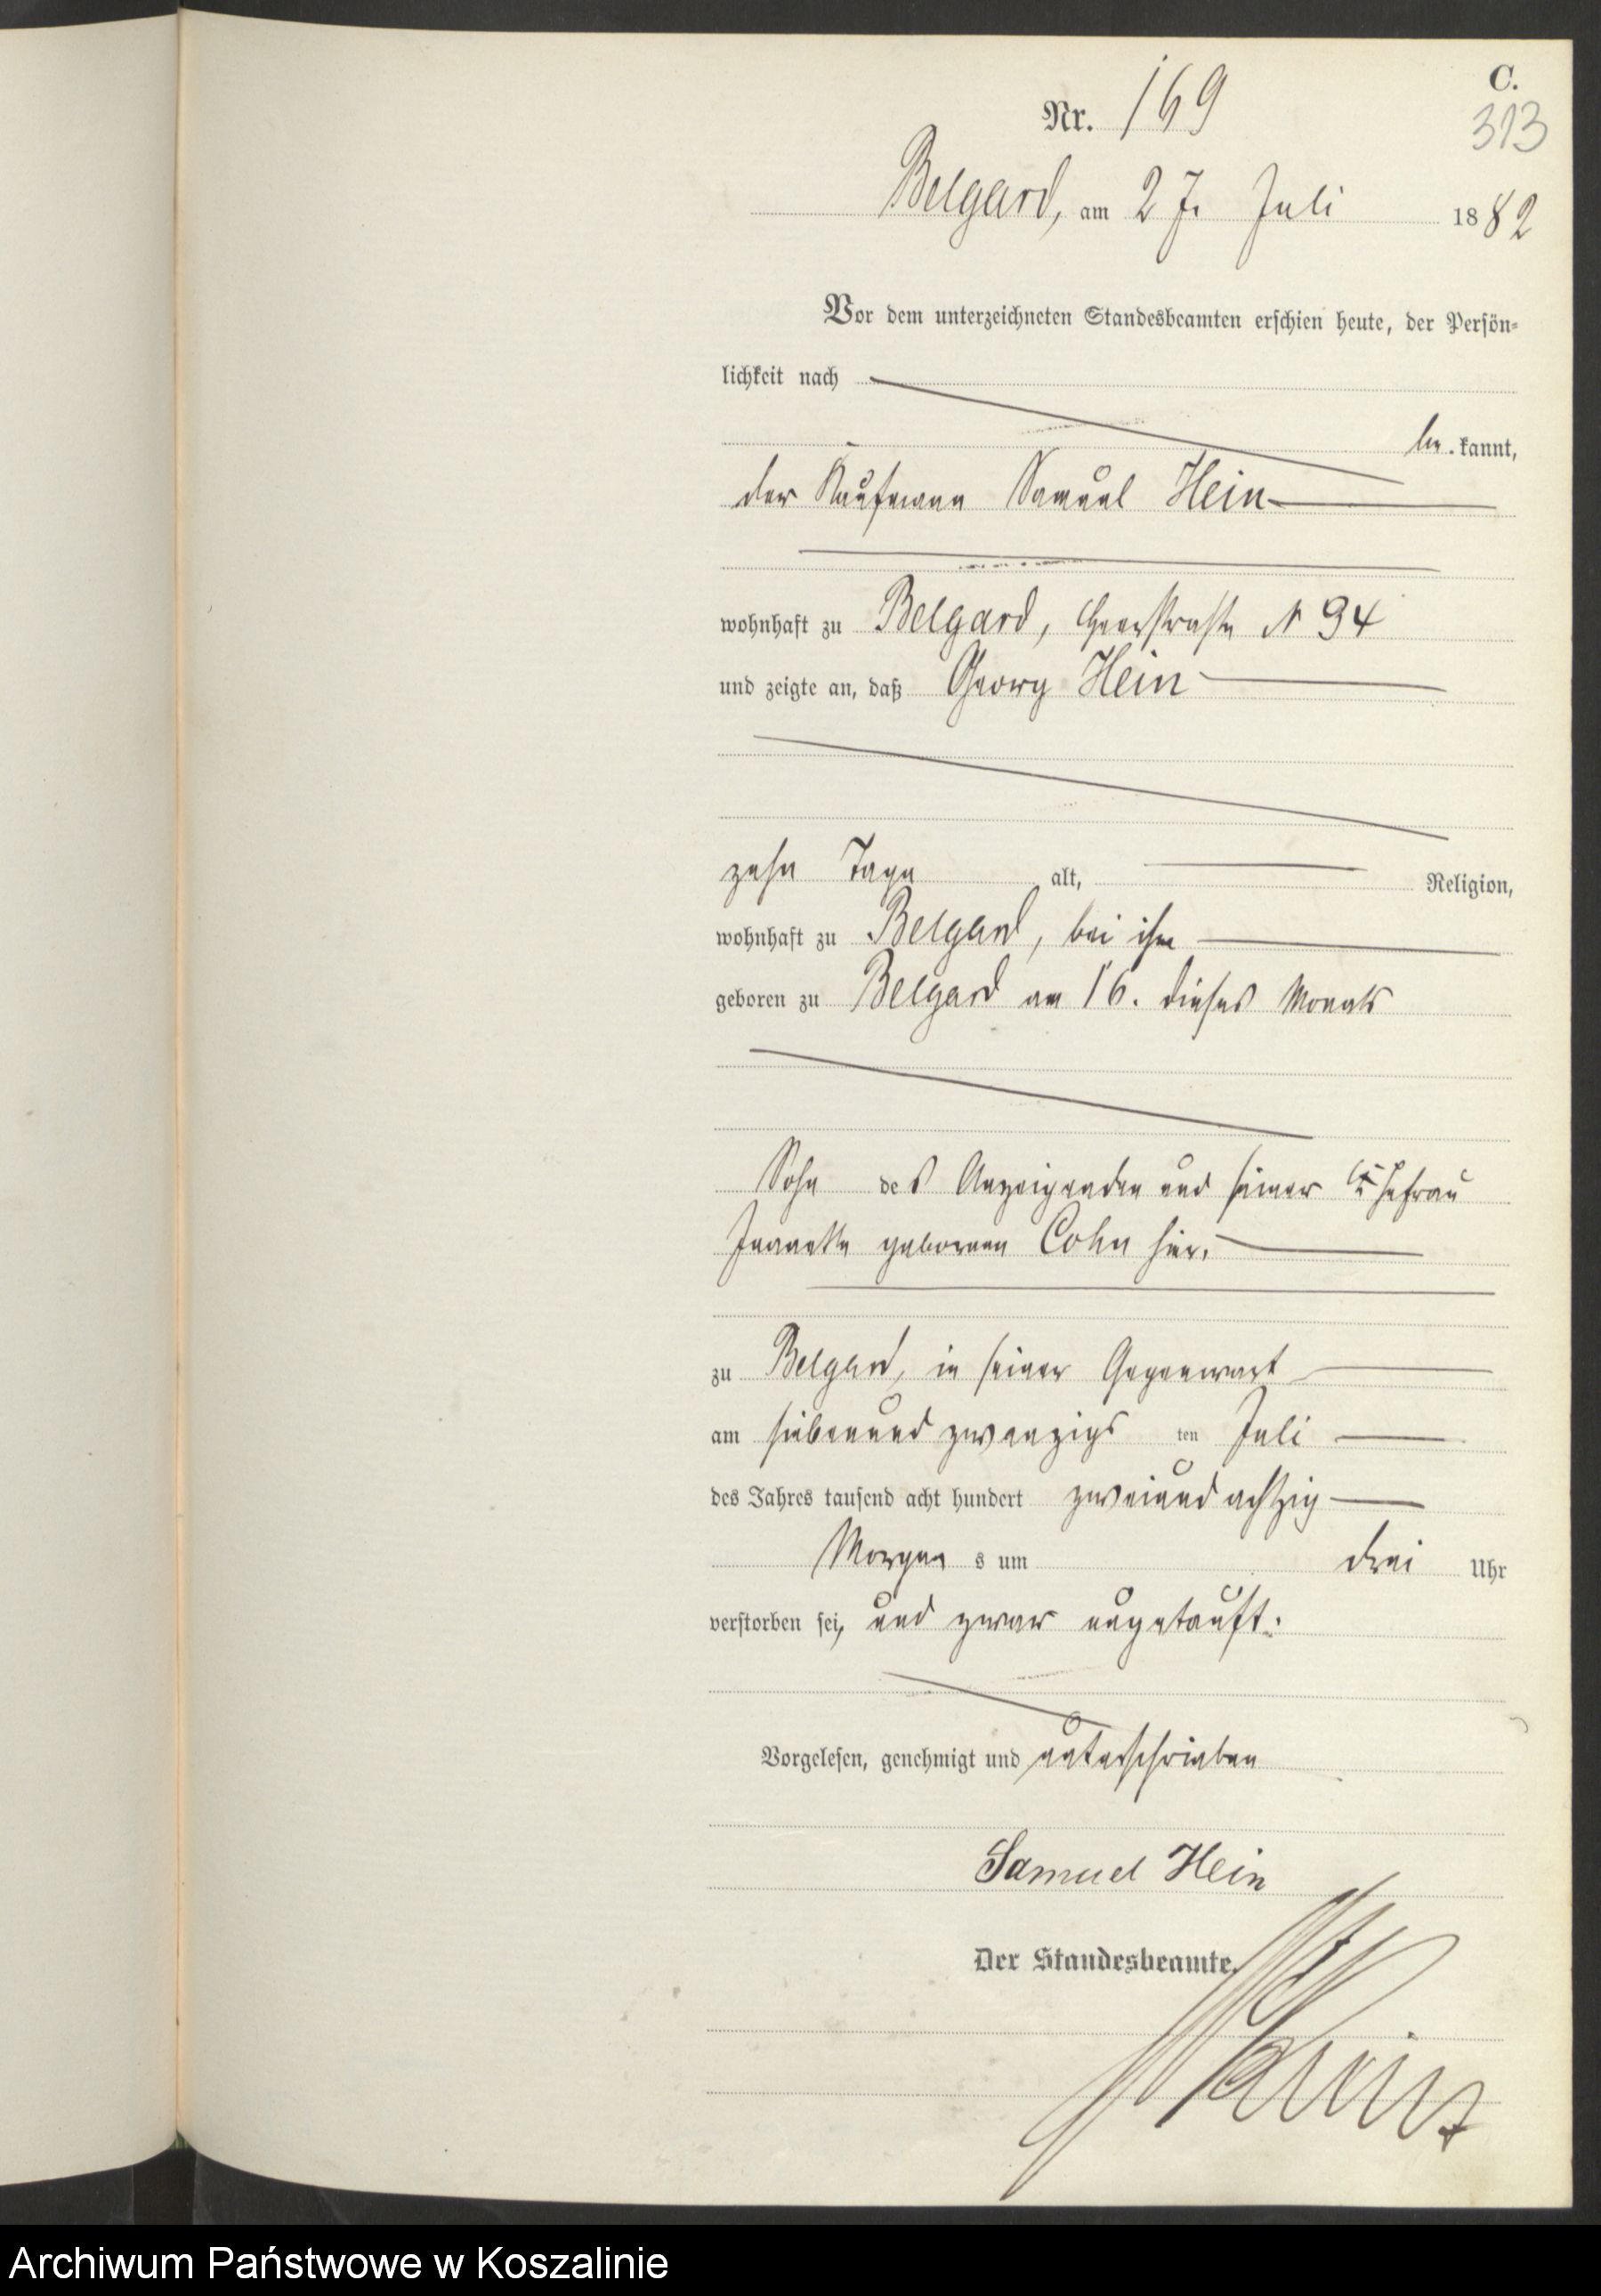 C.
Nr. 169
313
Belgard, am 27. Juli 1882
Vor dem unterzeichneten Standesbeamten erschien heute, der Persön-
lichkeit nach
be.kannt,
der Kaufmann Samuel Hein
wohnhaft zu Belgard, Heerstraße N 94
und zeigte an, daß Georg Hein
zehn Tage alt, Religion,
wohnhaft zu Belgard, bei ihm
geboren zu Belgard am 16. dieses Monats
Sohn des Anzeigenden und seiner Ehefrau
Jeanette geborenen Cohn hier.
zu Belgard, in seiner Gegenwart
am siebenundzwanzigs ten Juli
des Jahres tausend acht hundert zweiundachtzig
Morgen s um drei Uhr
verstorben sei, und zwar ungetauft.
Vorgelesen, genehmigt und unterschrieben
Samuel Hein
Der Standesbeamte.
Archiwum Państwowe w Koszalinie